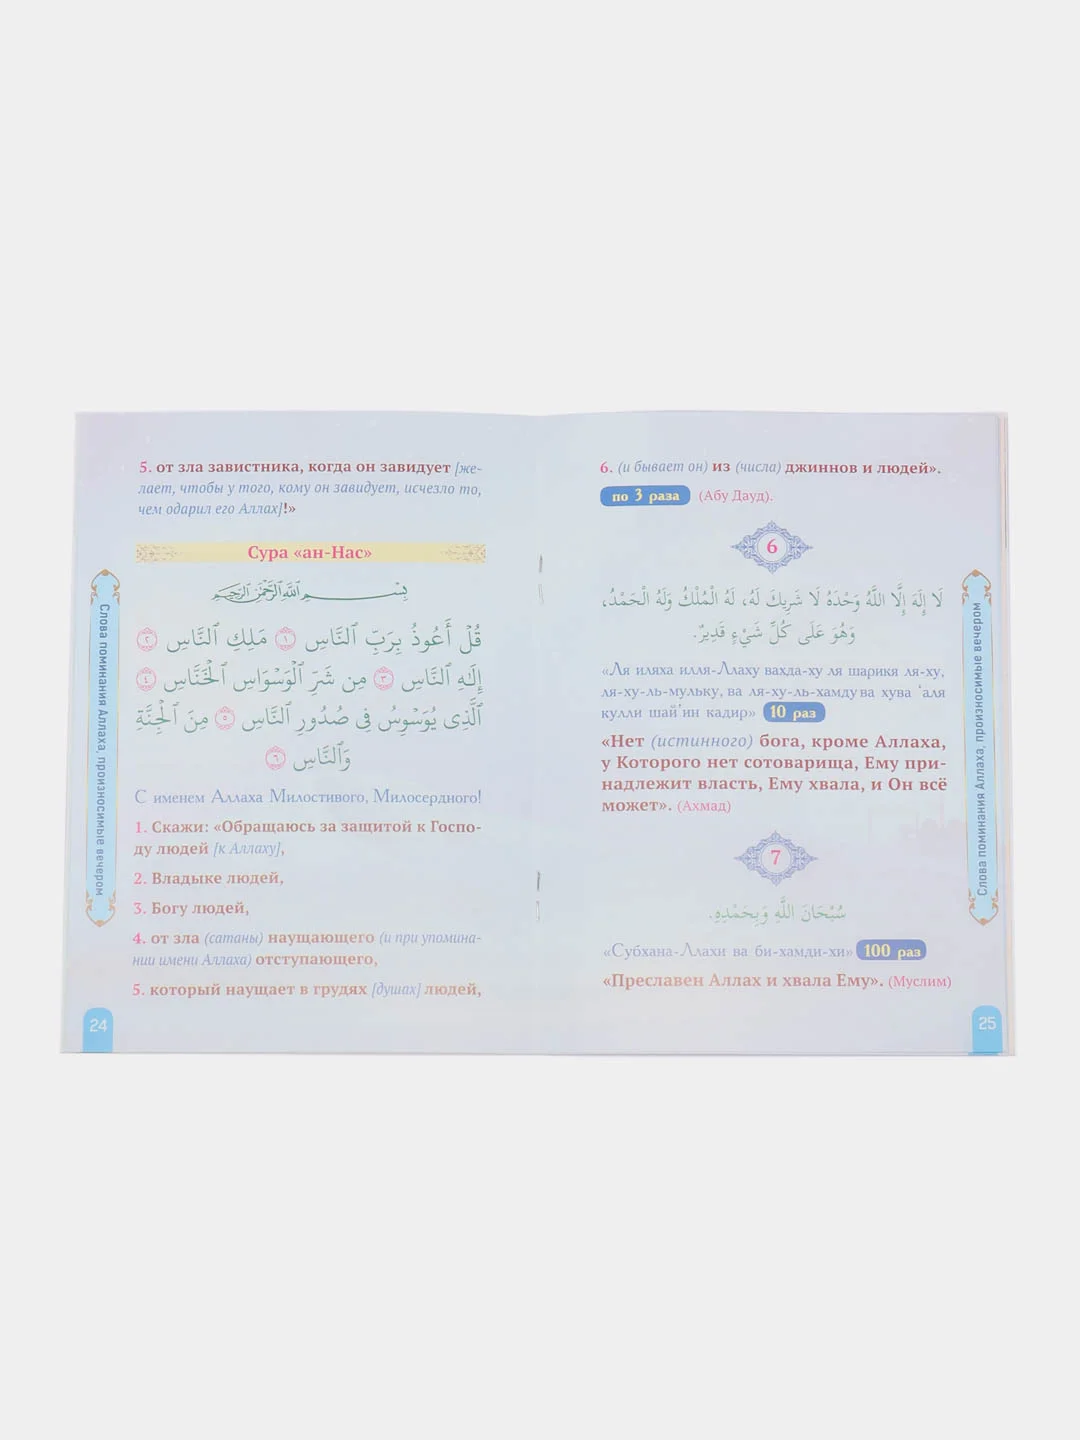 5. от зла завистника, когда он завидует [же-
лает, чтобы у того, кому он завидует, исчезло то,
чем одарил его Аллах]!»
Сура «ан-Нас»
بِسْمِ اللَّهِ الرَّحْمَٰنِ الرَّحِيمِ
قُلْ أَعُوذُ بِرَبِّ ٱلنَّاسِ ١ مَلِكِ ٱلنَّاسِ ٢
إِلَٰهِ ٱلنَّاسِ ٣ مِن شَرِّ ٱلْوَسْوَاسِ ٱلْخَنَّاسِ ٤
ٱلَّذِى يُوَسْوِسُ فِى صُدُورِ ٱلنَّاسِ ٥ مِنَ ٱلْجِنَّةِ
وَٱلنَّاسِ ٦
С именем Аллаха Милостивого, Милосердного!
1. Скажи: «Обращаюсь за защитой к Госпо-
ду людей [к Аллаху],
2. Владыке людей,
3. Богу людей,
4. от зла (сатаны) наущающего (и при упомина-
нии имени Аллаха) отступающего,
5. который наущает в грудях [душах] людей,
Слова поминания Аллаха, произносимые вечером
24
6. (и бывает он) из (числа) джиннов и людей».
по 3 раза (Абу Дауд).
6
لَا إِلَهَ إِلَّا اللَّهُ وَحْدَهُ لَا شَرِيكَ لَهُ، لَهُ الْمُلْكُ وَلَهُ الْحَمْدُ،
وَهُوَ عَلَى كُلِّ شَيْءٍ قَدِيرٌ.
«Ля иляха илля-Ллаху вахда-ху ля шарикя ля-ху,
ля-ху-ль-мульку, ва ля-ху-ль-хамду ва хува ‘аля
кулли шай’ин кадир» 10 раз
«Нет (истинного) бога, кроме Аллаха,
у Которого нет сотоварища, Ему при-
надлежит власть, Ему хвала, и Он всё
может». (Ахмад)
7
سُبْحَانَ اللَّهِ وَبِحَمْدِهِ.
«Субхана-Ллахи ва би-хамди-хи» 100 раз
«Преславен Аллах и хвала Ему». (Муслим)
Слова поминания Аллаха, произносимые вечером
25